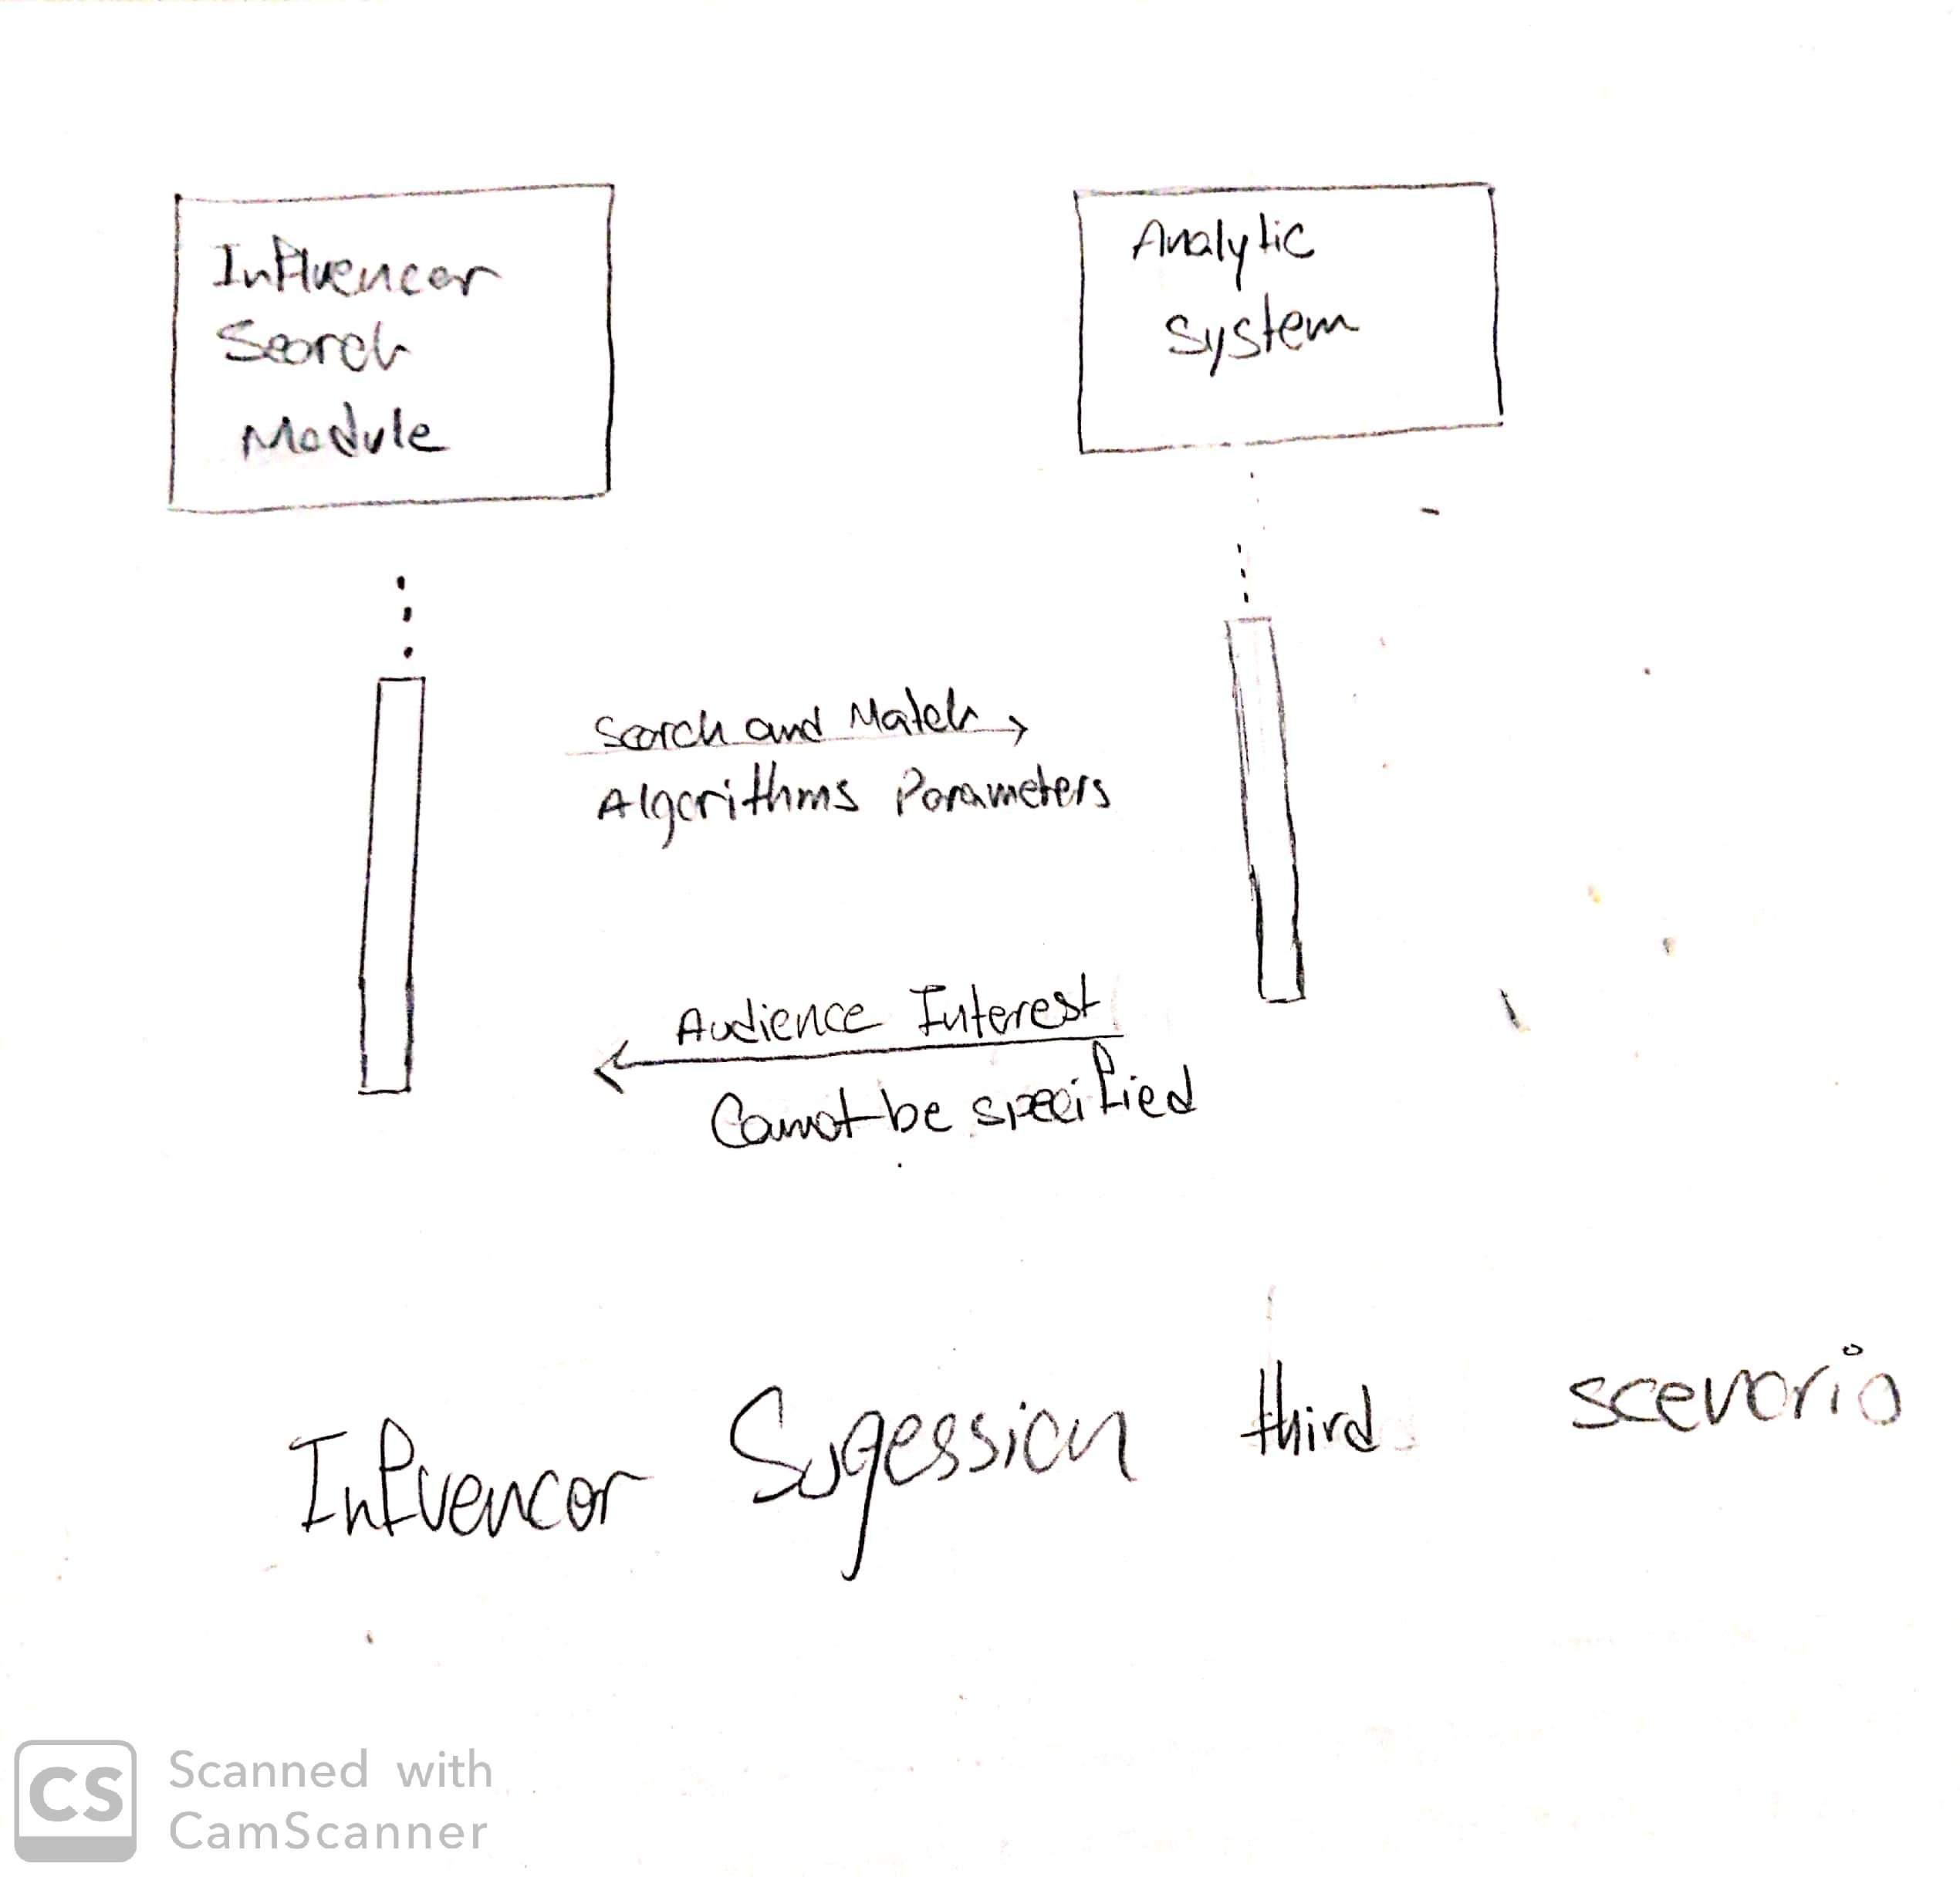 Influencer
Search
Module
Analytic
System
Search and Match
Algorithms Parameters
Audience Interest
Cannot be specified
Influencer Sugession third scenario
CS
Scanned with
CamScanner